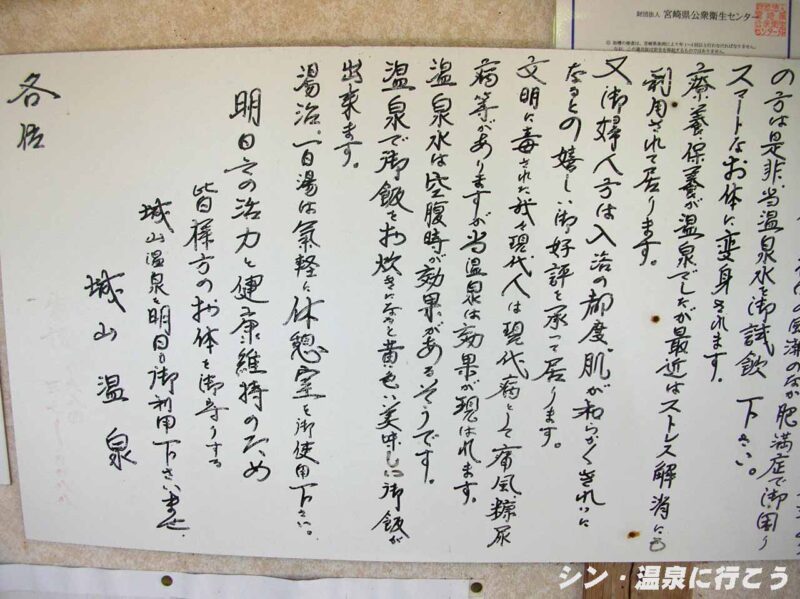 財団法人 宮崎県公衆衛生センター
の風潮のなか肥満症で御困り
の方は是非、当温泉水を御試飲下さい。
スマートなお体に変身されます。
療養、保養が温泉でしたが最近はストレス解消にも
利用されて居ります。
又、御婦人方は入浴の都度、肌が和らかくきれいに
なるとの嬉しい御好評を承って居ります。
文明に毒された我々現代人は現代病として痛風、糖尿
病等がありますが当温泉は効果が現はれます。
温泉水は空腹時が効果があるそうです。
温泉で御飯をお炊きになると黄色い美味しい御飯が
出来ます。
湯治、一日湯は気軽に休憩室を御使用下さい。
明日への活力と健康維持のため
皆様方のお体を御守りする
城山温泉を明日も御利用下さいませ。
城山温泉
各位
シン・温泉に行こう